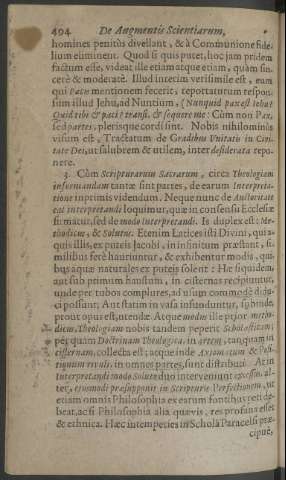 494 De Augmentis Scientiarum,
homines penitùs divellant, & à Communione fide-
lium eliminent. Quod si quis putet, hoc jam pridem
factum esse, videat ille etiam atque etiam, quàm sin-
cerè & moderatè. Illud interim verisimile est, eum
qui Pacis mentionem fecerit, reportaturum respon-
sum illud Jehu, ad Nuntium, (Nunquid pax est Jehu?
Quid tibi & paci? transi, & sequere me: Cùm non Pax,
sed partes, plerisque cordi sint. Nobis nihilominùs
visum est, Tractatum de Gradibus Unitatis in Civi-
tate Dei, ut salubrem & utilem, inter desiderata repo-
nere.
3. Cùm Scripturarum Sacrarum, circa Theologiam
informandam tantæ sint partes, de earum Interpreta-
tione inprimis videndum. Neque nunc de Auctoritate
eas interpretandi loquimur, quæ in consensu Ecclesiæ
firmatur, sed de modo Interpretandi. Is duplex est: Me-
thodicus, & Solutus. Etenim Latices isti Divini, qui a-
quis illis, ex puteis Jacobi, in infinitum præstant, si-
milibus ferè hauriuntur, & exhibentur modis, qui-
bus aquæ naturales ex puteis solent: Hæ siquidem,
aut sub primum haustum, in cisternas recipiuntur,
unde per tubos complures, ad usum commodè dedu-
ci possunt; Aut statim in vasa infunduntur, subinde,
prout opus est, utendæ. Atque modus ille prior metho-
dicus, Theologiam nobis tandem peperit Scholasticam;
per quam Doctrina Theologica, in artem, tanquam in
cisternam, collecta est; atque inde Axiomatum & Posi-
tionum rivuli, in omnes partes, sunt distributi. At in
Interpretandi modo Soluto duo interveniunt excessus. Al-
ter, ejusmodi præsupponit in Scripturis Perfectionem, ut
etiam omnis Philosophia ex earum fontibus peti de-
beat, ac si Philosophia alia quævis, res profana esset
& ethnica. Hæc intemperies in Scholâ Paracelsi præ-
cipuè,